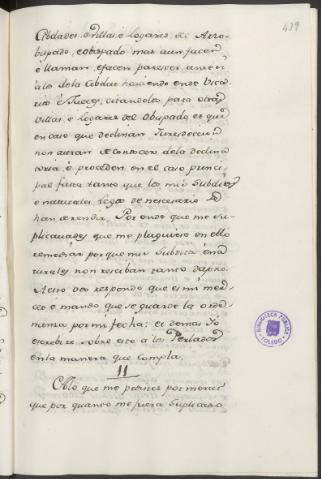 439
Cibdades, e Villas, e Logares del Arzo-
bispado, e obispado mas aun facen
e llaman, e facen parescer, ante si
alos dela Cibdad haviendo ende Vica-
rios e Jueces, citandolos para otras
Villas, e Logares del Obispado, e que
en caso que declinan Jurisdiccion
non curan de conoscer dela declina
toria, e proceden en el caso princi-
pal fasta tanto que los mis Subditos
e naturales, que de nescesario
han de rendir, Por ende que me su-
plicavades que me pluguiese en ello
remediar porque mis Subditos e na
turales non resciban tanto dapno.
A esto vos respondo que es mi mer-
ced e mando que se guarde la orde-
nanza por mi fecha: e demas Yo
escrebire sobre esto a los Perlados
en la manera que cumpla.
11
Alo que me pedistes por merced
que por quanto me fuera Suplicado
BIBLIOTECA PUBLICA
TOLEDO